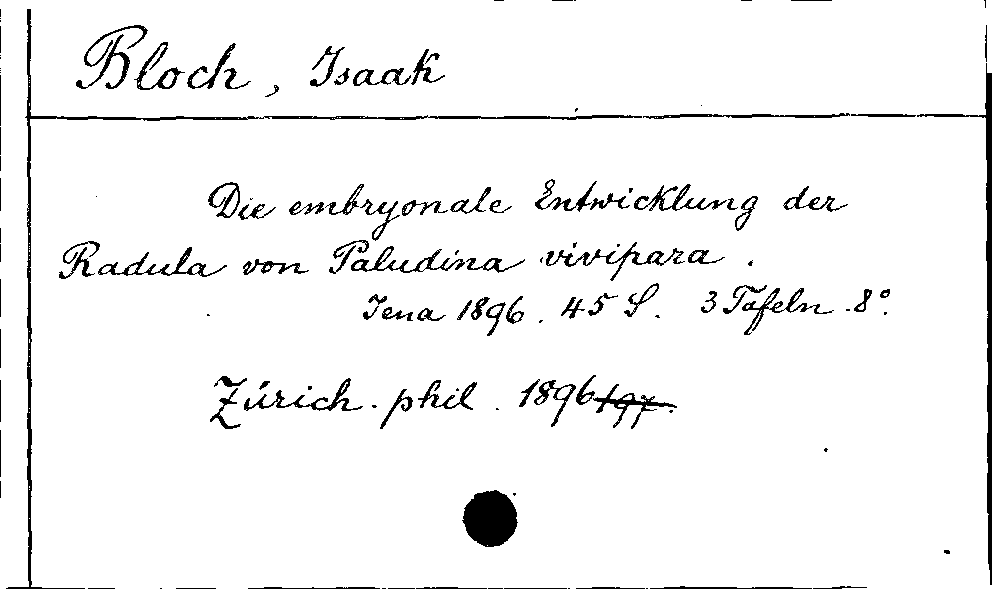 Bloch, Isaak
Die embryonale Entwicklung der
Radula von Paludina vivipara.
Jena 1896. 45 S. 3 Tafeln. 8°.
Zürich. phil. 1896/97.